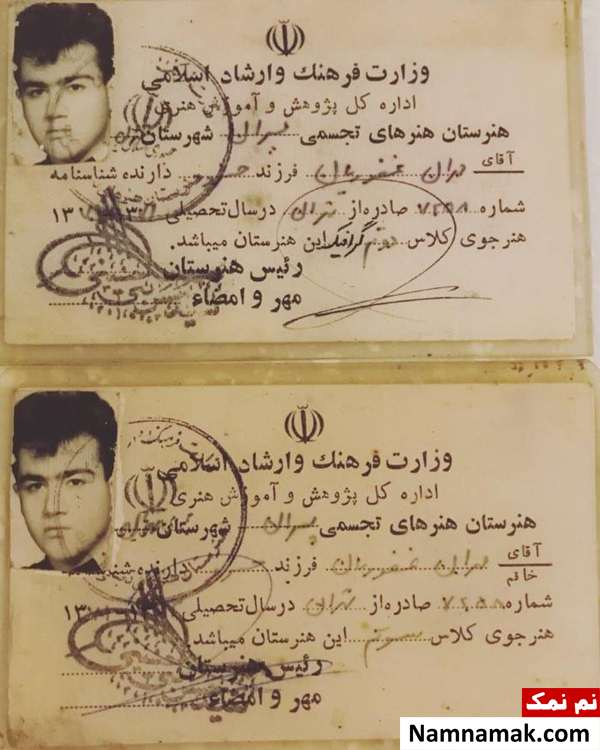 وزارت فرهنك وارشاد اسلامی
اداره کل پژوهش و آموزش هنری
هنرستان هنرهای تجسمی پسران شهرستان تهران
آقای مهران غفوریان فرزند دارنده شناسنامه
شماره صادره‌از تهران درسال‌تحصیلی ۱۳
هنرجوی کلاس دوم گرافیک این هنرستان میباشد.
رئیس هنرستان
مهر و امضاء
وزارت فرهنك وارشاد اسلامی
اداره کل پژوهش و آموزش هنری
هنرستان هنرهای تجسمی پسران شهرستان
آقای
خانم
مهران غفوریان فرزند دارنده شناسنامه
شماره صادره‌از تهران درسال‌تحصیلی ۱۳
هنرجوی کلاس سوم این هنرستان میباشد
رئیس هنرستان
مهر و امضاء
نم نمک
Namnamak.com